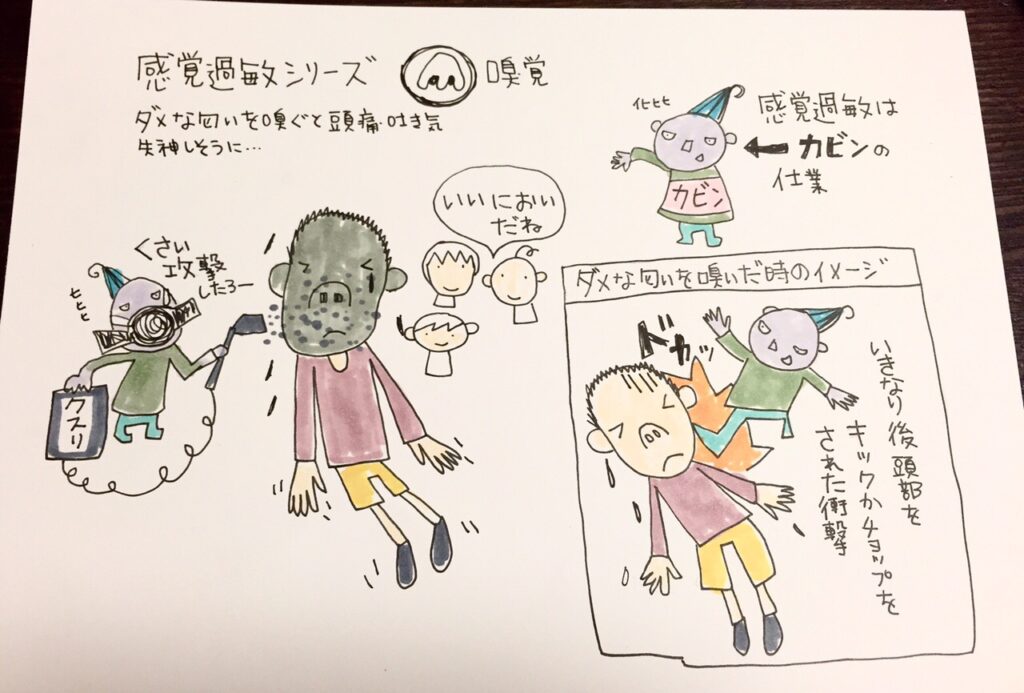 感覚過敏シリーズ 嗅覚
ダメな匂いを嗅ぐと頭痛・吐き気
失神しそうに…
イヒヒヒ
感覚過敏は
カビンの
仕業
カビン
いいにおい
だね
くさい
攻撃
したろー
ヒヒヒ
クスリ
ダメな匂いを嗅いだ時のイメージ
ドカッ
いきなり後頭部を
キックかチョップを
された衝撃